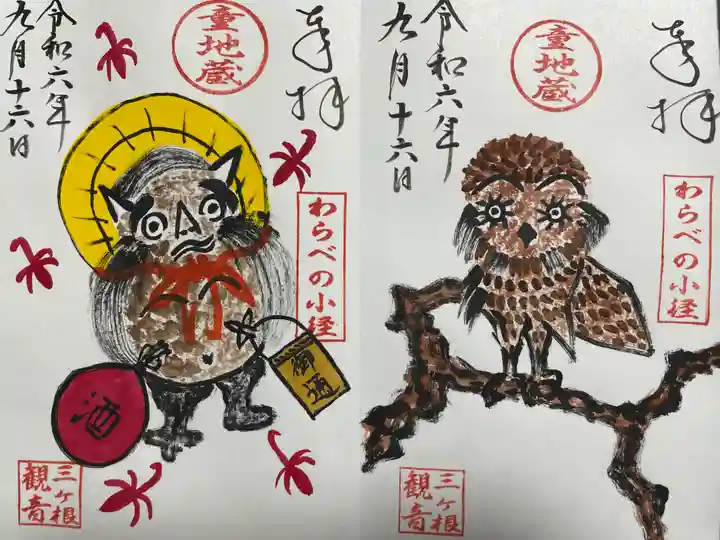 奉拝
童地蔵
令和六年
九月十六日
わらべの小径
酒
御通
三ヶ根
観音
奉拝
童地蔵
令和六年
九月十六日
わらべの小径
三ヶ根
観音